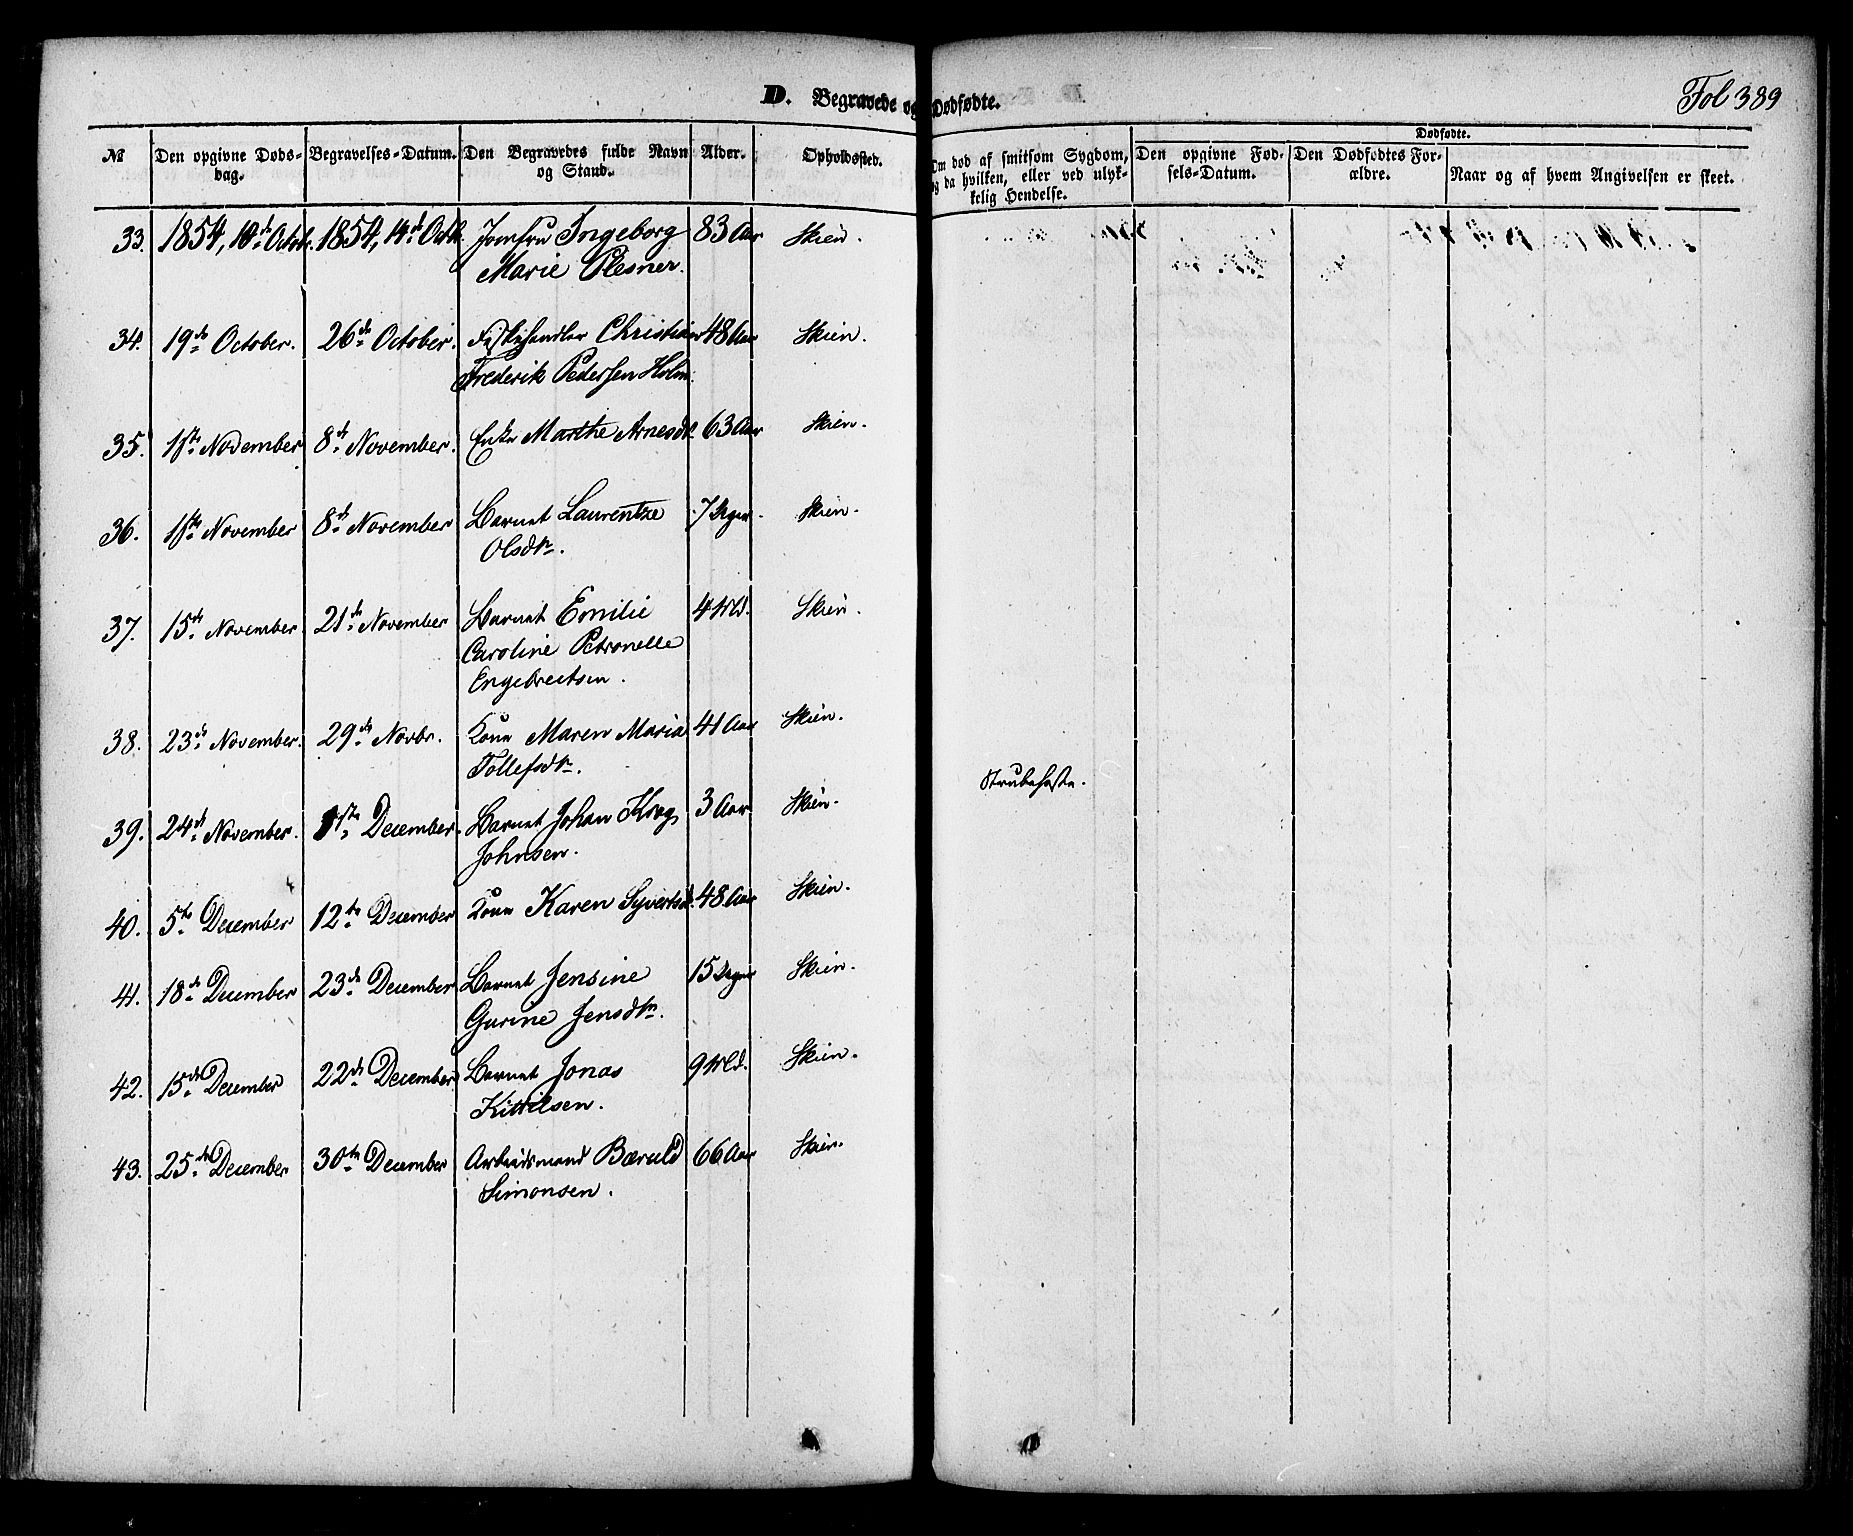 D. Begravede og Dødfødte.
Fol 389
Dødfødte.
№ Den opgivne Døds- Begravelses-Datum. Den Begravedes fulde Navn Alder. Opholdssted. Om død af smitsom Sygdom, Den opgivne Fød- Den Dødfødtes For- Naar og af hvem Angivelsen er skeet.
dag. og Stand. og da hvilken, eller ved ulyk- sels-Datum. ældre.
kelig Hendelse.
33. 1854, 10de Octbr. 1854, 14d Octb. Jomfru Ingeborg 83 Aar Skien.
Marie Plesner.
34. 19de October. 26de October. Fiskehandler Christian 48 Aar Skien.
Frederik Pedersen Holm.
35. 1ste November 8de November. Enke Marthe Arnesdtr. 63 Aar Skien.
36. 1ste November 8de November Barnet Laurentze 7 Dage. Skien.
Olsdtr.
37. 15de November 21de November Barnet Emilie 4 Md. Skien.
Caroline Petronelle
Engebretsen.
38. 23de November. 29de Novbr. Kone Maren Maria 41 Aar Skien.
Tollefsdtr.
39. 24de November. 1ste December. Barnet Johan Krog 3 Aar Skien. Strubehoste.
Johnsen.
40. 5te December 12te December Kone Karen Syvertsd. 48 Aar Skien.
41. 18de December 23de December Barnet Jensine 15 Dage Skien.
Gurine Jensdtr.
42. 15de December 22de December Barnet Jonas 9 Md. Skien.
Kittilsen.
43. 25de December 30te December Arbeidsmand Bæruld 66 Aar Skien.
Simonsen.